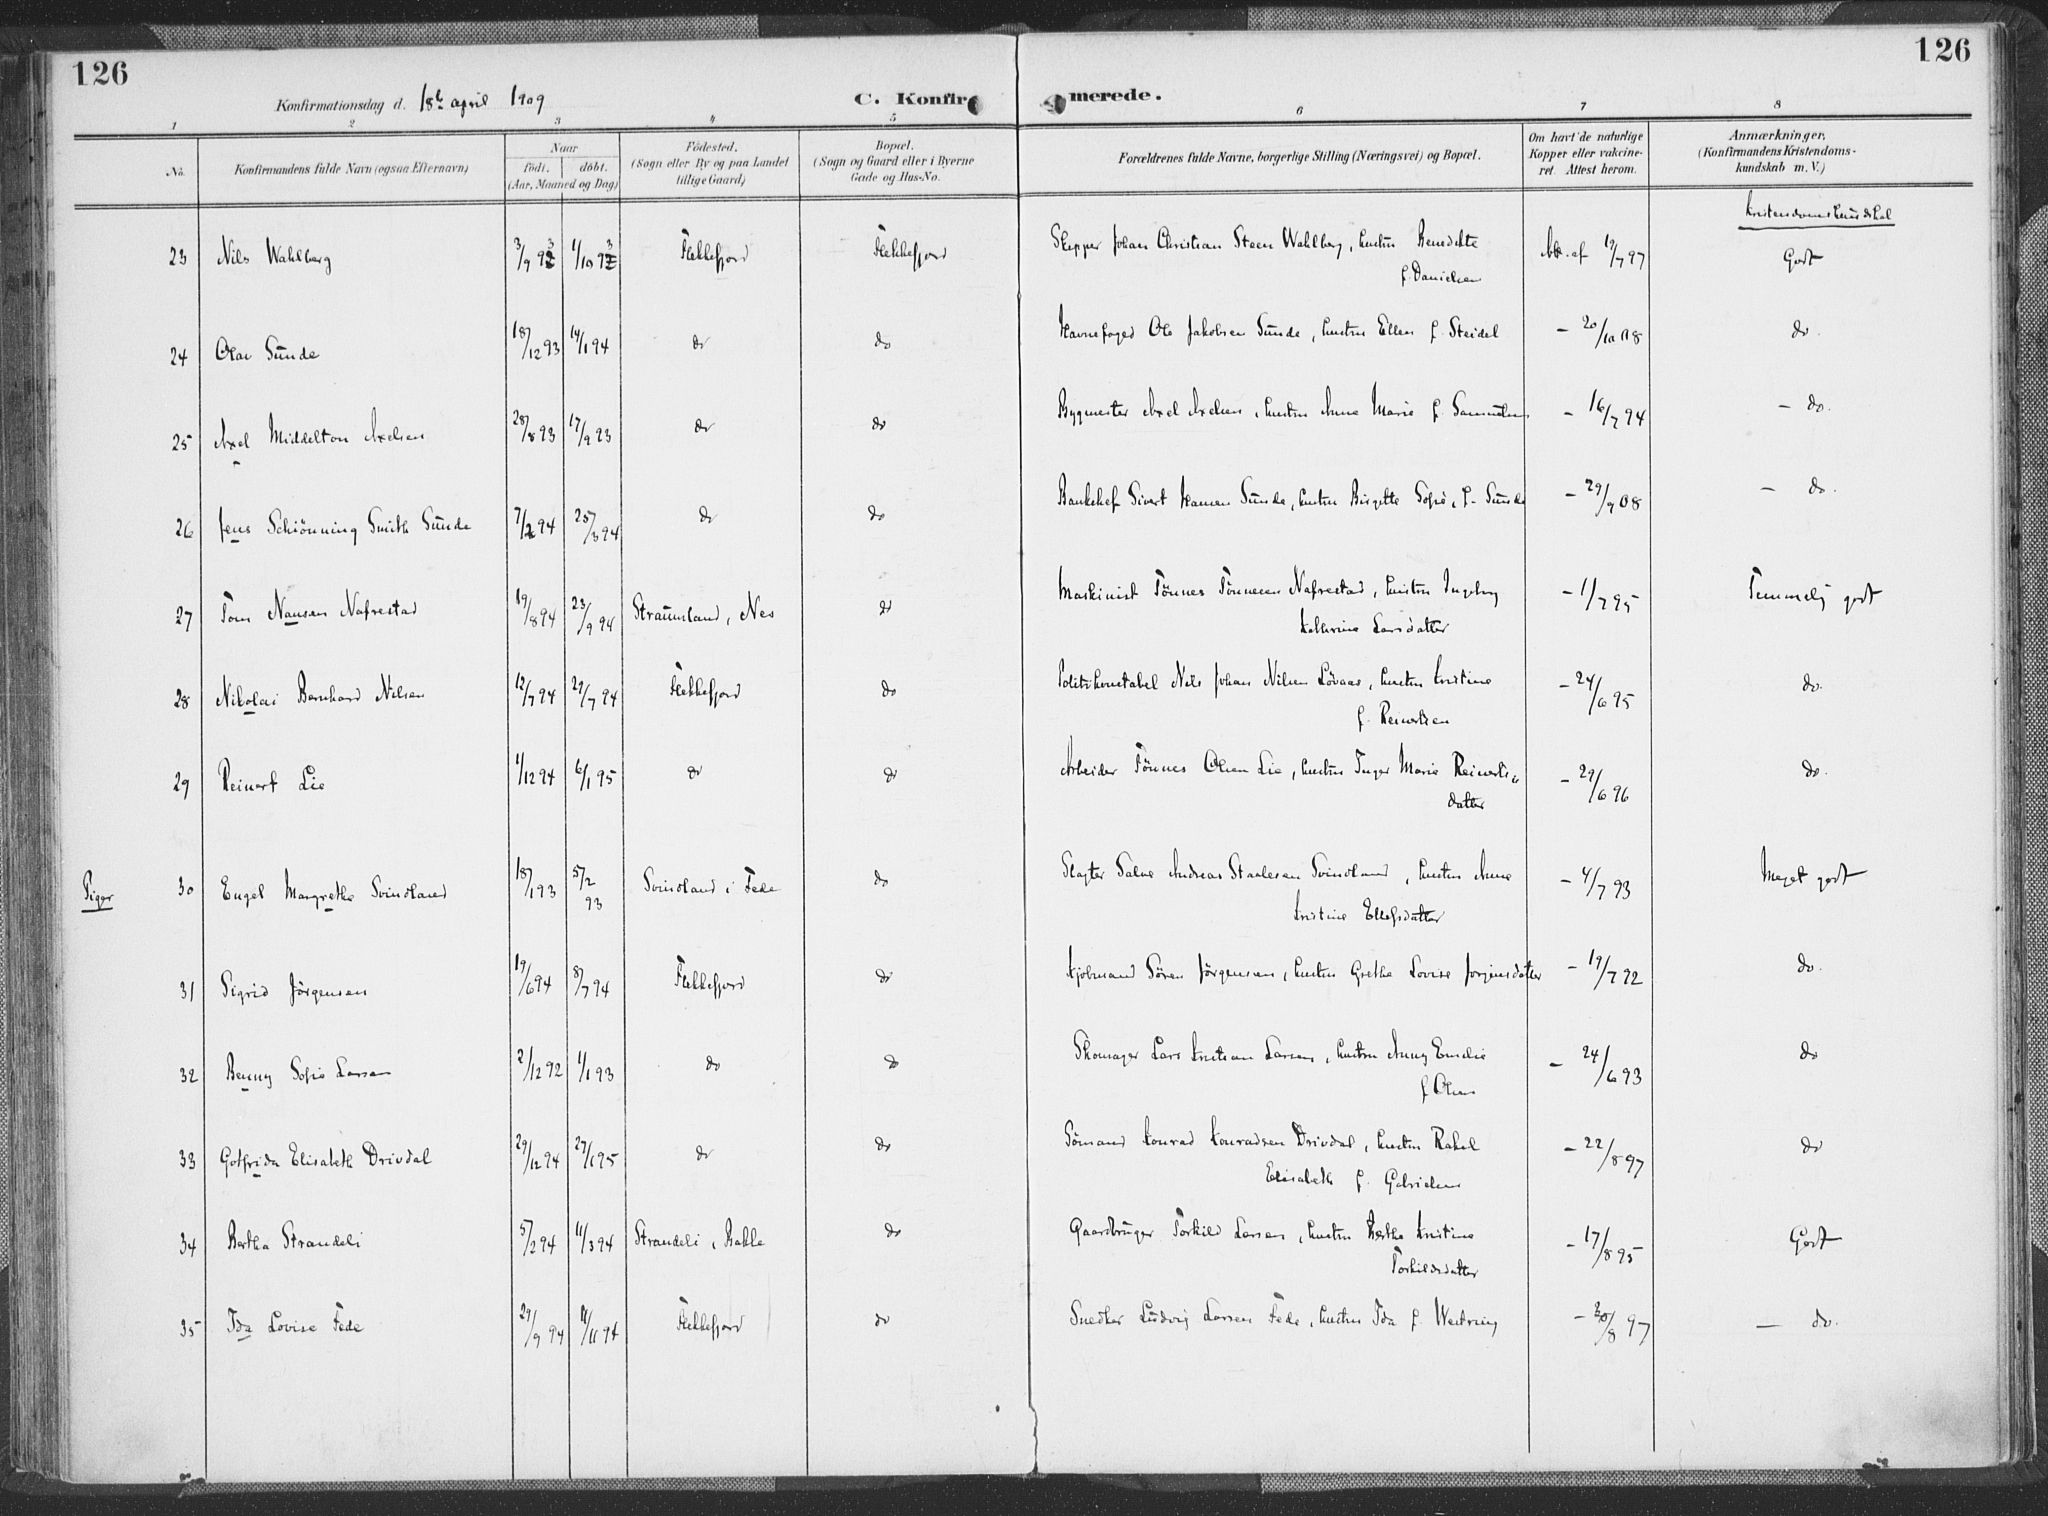 126
126
Konfirmationsdag d. 18de april 1909
C. Konfirmerede.
1 2 3 4 5 6 7 8
No. Konfirmandens fulde Navn (ogsaa Efternavn) Naar født. døbt. (Aar, Maaned og Dag) Fødested. (Sogn eller By og paa Landet tillige Gaard) Bopæl. (Sogn og Gaard eller i Byerne Gade og Hus-No. Forældrenes fulde Navne, borgerlige Stilling (Næringsvei) og Bopæl. Om havt de naturlige Kopper eller vakcineret. Attest herom. Anmærkninger, (Konfirmandens Kristendomskundskab m. V.)
Kristendomskundskab
23 Nils Wahlberg 3/9 93 1/10 93 Flekkefjord Flekkefjord Skipper Johan Christian Steen Wahlberg, hustru Benedikte Att. af 19/7 97 Godt
f. Danielsen
24 Olav Sunde 18/12 93 14/1 94 do do Havnefoged Ole Jakobsen Sunde, hustru Ellen f. Steidel – 20/10 08 do.
25 Axel Middelton Axelsen 28/8 93 17/9 93 do do Bygmester Axel Axelsen, hustru Anne Marie f. Samuelsen – 16/7 94 – do.
26 Jens Schiönning Smith Sunde 7/2 94 25/3 94 do do Bankchef Sivert Hansen Sunde, hustru Birgitte Sofie, f. Sunde – 29/9 08 – do.
27 Tom Nansen Nafrestad 19/8 94 23/9 94 Straumland, Nes do Maskinist Tönnes Tönnesen Nafrestad, hustru Ingeborg – 1/7 95 Temmelig godt
Katherine Larsdatter
28 Nikolai Bernhard Nilsen 12/7 94 29/7 94 Flekkefjord do Politikonstabel Nils Johan Nilsen Lövaas, hustru Kristine – 24/6 95 do.
f. Reinertsen
29 Reinert Lie 1/12 94 6/1 95 do do Arbeider Tönnes Olsen Lie, hustru Inger Marie Reinerts – 29/6 96 do.
datter
Piger 30 Engel Margrethe Svindland 18/1 93 5/2 93 Svindland i Fede do Slagter Salve Andreas Staalesen Svindland, hustru Anne – 4/7 93 Meget godt
Kristine Ellefsdatter
31 Sigrid Jörgensen 19/6 94 8/7 94 Flekkefjord do Kjöbmand Sören Jörgensen, hustru Grethe Lovise Jörgensdatter – 19/7 92 do.
32 Benny Sofie Larsen 2/12 92 1/1 93 do do Skomager Lars Kristian Larsen, hustru Anny Emelie – 24/6 93 do
f. Olsen
33 Gotfrida Elisabeth Drivdal 29/12 94 27/1 95 do do Sömand Konrad Konradsen Drivdal, hustru Rakel – 22/8 97 do
Elisabeth f. Gabrielsen
34 Bertha Strandeli 5/2 94 11/3 94 Strandeli, Bakke do Gaardbruger Torkild Larsen, hustru Berthe Kristine – 17/8 95 Godt
Torkildsdatter
35 Ida Lovise Fede 29/9 94 11/11 94 Flekkefjord do Snedker Ludvig Larsen Fede, hustru Ida f. Westring – 30/8 97 – do.